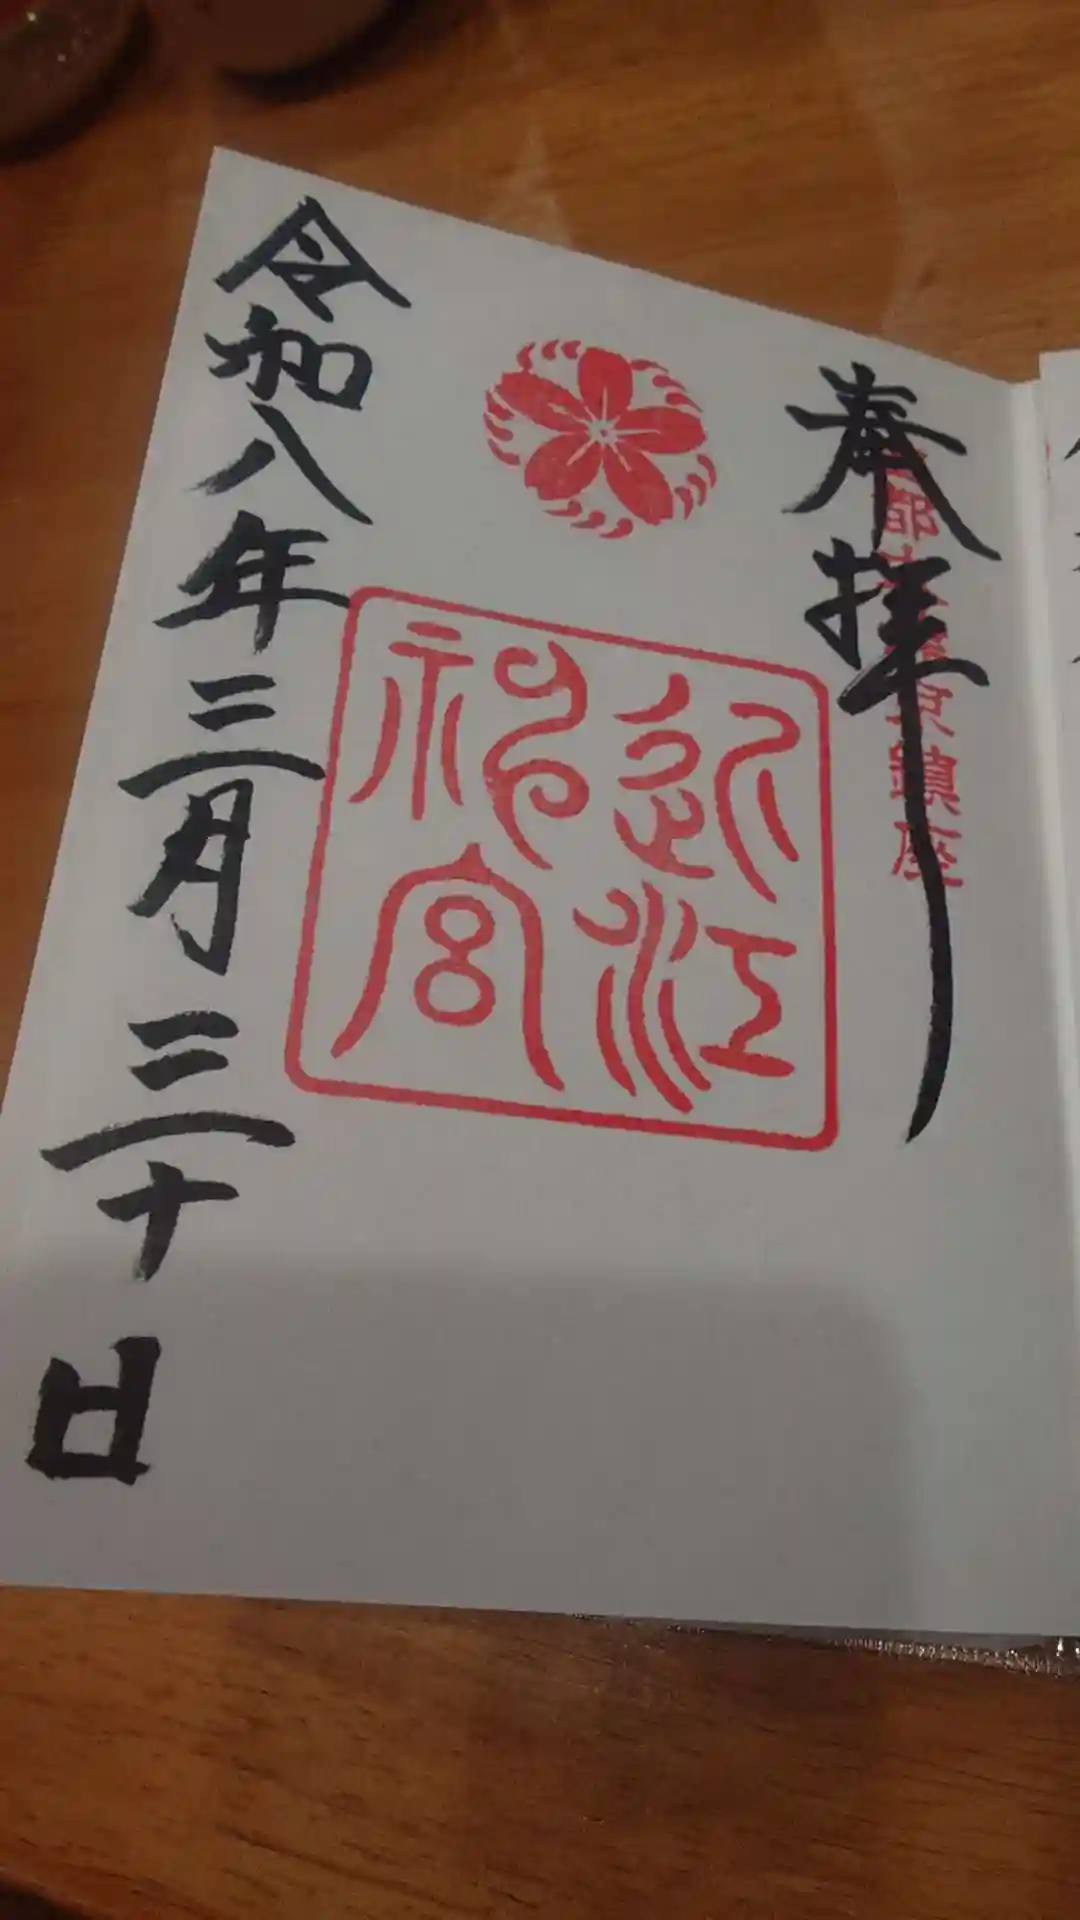 奉拝
近江
神宮
令和八年三月三十日